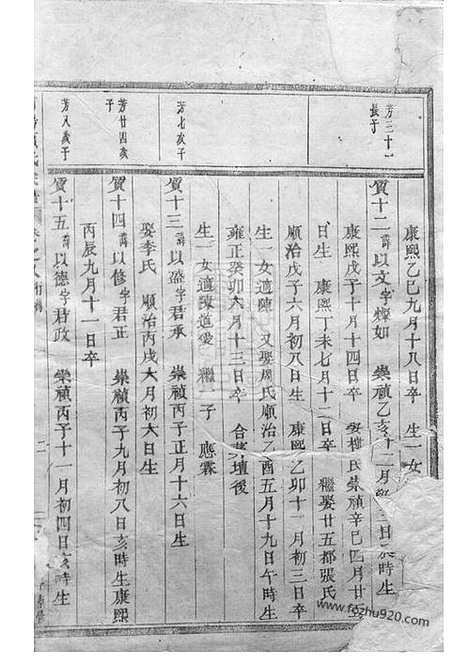 康熙乙巳九月十八日卒 生一女
芳三十一長子
質十二 諱以文字燦如 崇禎乙亥十二月 日 時生
康熙戊子十月十四日卒 娶 氏崇禎辛巳四月廿
日生 康熙丁未七月十二日卒 繼娶廿五都張氏
順治戊子六月初八日生 康熙乙卯十一月初三日卒
生一女適陳 又娶周氏順治乙酉五月十九日午時生
雍正癸卯六月十三日卒 合葬壇後
生一女適陳道愛 繼一子 應霖
芳七次子
質十三 諱以盈字君承 崇禎丙子正月十六日生
娶李氏 順治丙戌六月初六日生
芳廿四次子
質十四 諱以修字君正 崇禎丙子九月初八日亥時生康熙
丙辰九月十一日卒
芳八歲子
質十五 諱以德字君政 崇禎丙子十一月初四日亥時生
二
www.fozhu920.com